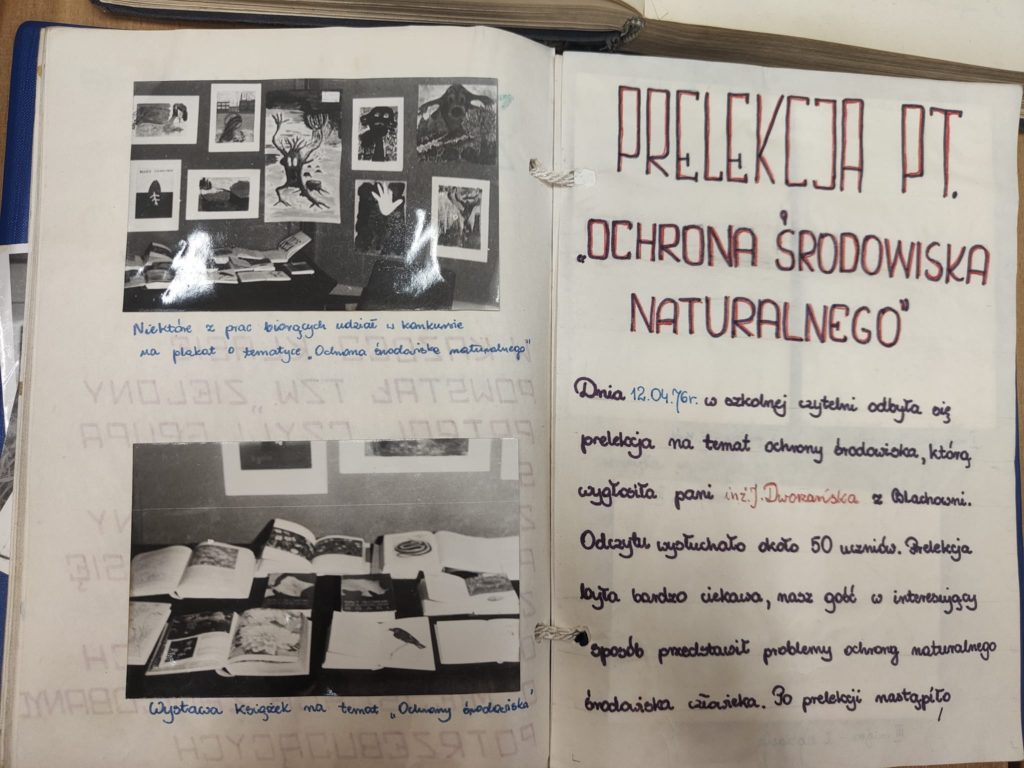 Niektóre z prac biorących udział w konkursie
na plakat o tematyce „Ochrona środowiska naturalnego"
Wystawa książek na temat „Ochrony środowiska"
PRELEKCJA PT.
„OCHRONA ŚRODOWISKA
NATURALNEGO"
Dnia 12.04.76r. w szkolnej czytelni odbyła się
prelekcja na temat ochrony środowiska, którą
wygłosiła pani inż. J. Dworańska z Blachowni.
Odczytu wysłuchało około 50 uczniów. Prelekcja
była bardzo ciekawa, nasz gość w interesujący
sposób przedstawił problemy ochrony naturalnego
środowiska człowieka. Po prelekcji nastąpiło